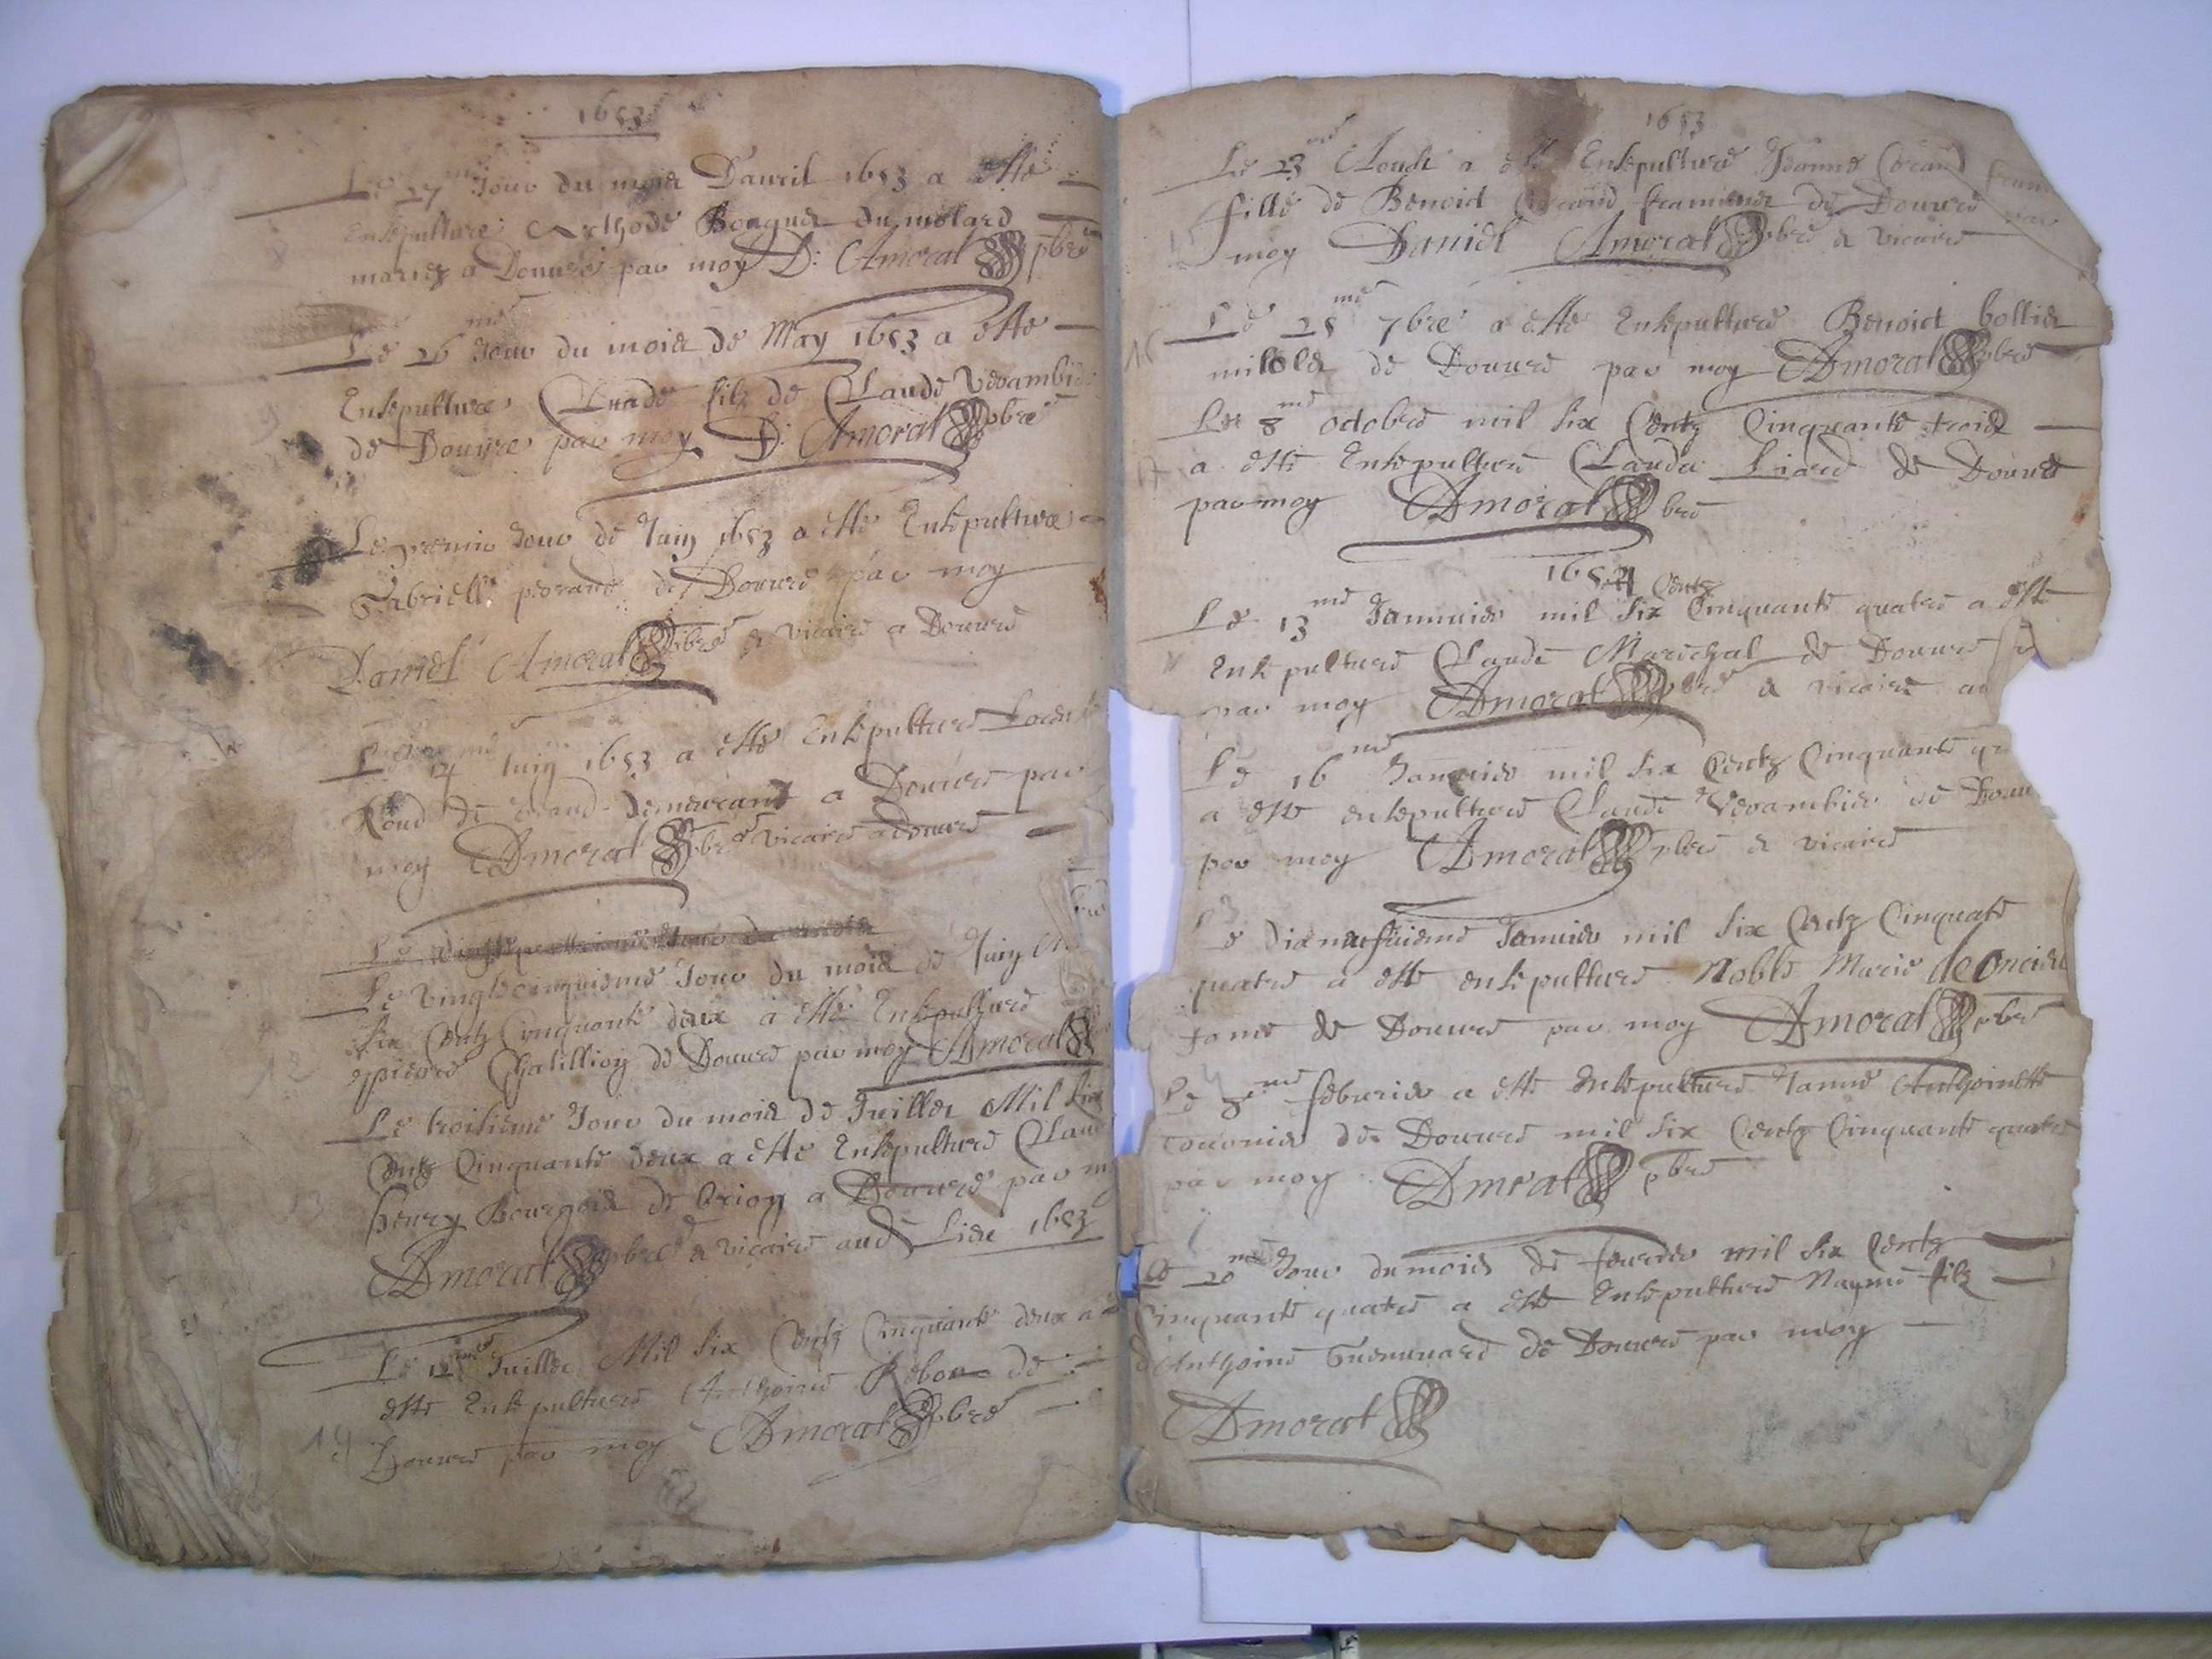 1653
Le 27me Jour du mois Dauril 1653 a esté
Ensepulture Bouguer du molard
mariez a Douure par moy D: Amoral pbre
Le 26me Jour du mois de May 1653 a esté
Ensepulture Claude filz de Claude Veoambi
de Douvre par moy D: Amoral pbre
Le premie Jour de Juin 1653 a esté Ensepulture
Gabrielle peorand de Douure par moy
Daniel Amoral pbre & vicaire a Douure
Le 14me Juin 1653 a esté Ensepulture
Roud de demeurant a Douure par
moy Amoral pbre & vicaire a Douure
Le
Le vingtcinquieme Jour du mois de Juin
six Centz Cinquante deux a esté Ensepulture
pierre Chatillioy de Douure par moy Amoral
Le troisieme Jour du mois de Juillet Mil Six
Centz Cinquante deux a esté Ensepulture Clau
henry Bourgois de Orioy a Douure par m
Amoral pbre & vicaire aud Lieu 1653
Le 12me Juillet Mil Six Centz Cinquante deux a
esté Ensepulture Anthoine Rebou de
14 Douure par moy Amoral pbre
1653
Le 23me Aoust a esté Ensepulture Jeanne
fille de Benoict de Douure par
moy Daniel Amoral pbre & vicaire
Le 25me 7bre a esté Ensepulture Benoict bollier
de Douure par moy Amoral pbre
Le 8me octobre mil six Centz Cinquante trois
a esté Ensepulture Claude Liard de Douure
par moy Amoral pbre
1654
Centz
Le 13me Januier mil Six Cinquante quatre a esté
Ensepulture Claude Marechal de Douure
par moy Amoral pbre & vicaire au
Le 16me Januier mil six Centz Cinquante qu
a esté ensepulture Claude Veoambier de Douu
par moy Amoral pbre & vicaire
Le dixneufuieme Januier mil six Centz Cinquate
quatre a esté ensepulture Noble Marie de Oncieu
fame de Douure par moy Amoral pbre
Le 8me feburier a esté Ensepulture Janne Anthoinette
de Douure mil six Centz Cinquante quatre
par moy Amoral pbre
Le 20me Jour du mois de feurier mil six Centz
Cinquante quatre a esté Ensepulture filz
d Anthoine Guennard de Douure par moy
Amoral